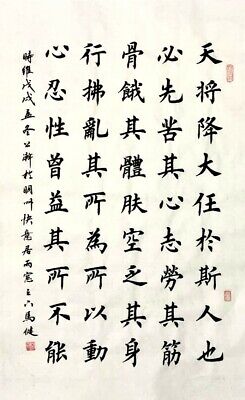 天将降大任於斯人也
必先苦其心志勞其筋
骨餓其體膚空乏其身
行拂亂其所為所以動
心忍性曾益其所不能
時維戊戌孟冬於明州快意居雨窓之下馬健